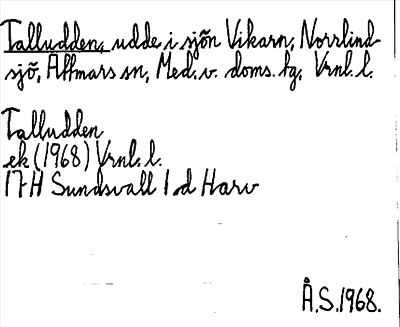 Talludden, udde i sjön Vikarn, Norrlind-
sjö, Attmars sn, Med. v. doms. hg, Vrnl. l.
Talludden
ek (1968) Vrnl. l.
17H Sundsvall 1 d Harv
Å.S. 1968.